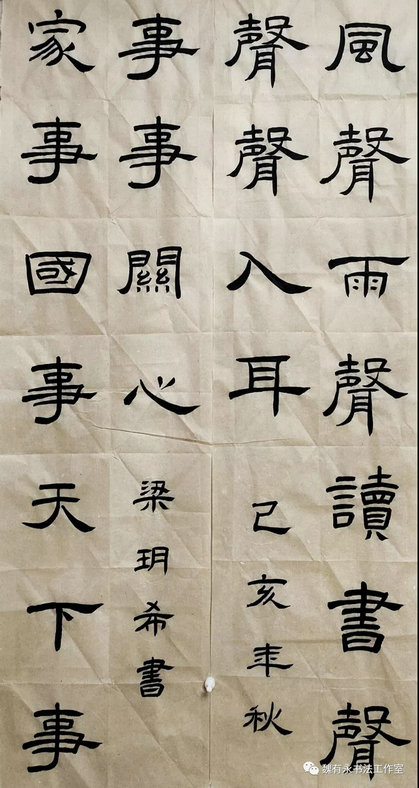 風聲雨聲讀書聲
聲聲入耳
己亥年秋
家事國事天下事
事事關心
梁玥希書
魏有永书法工作室